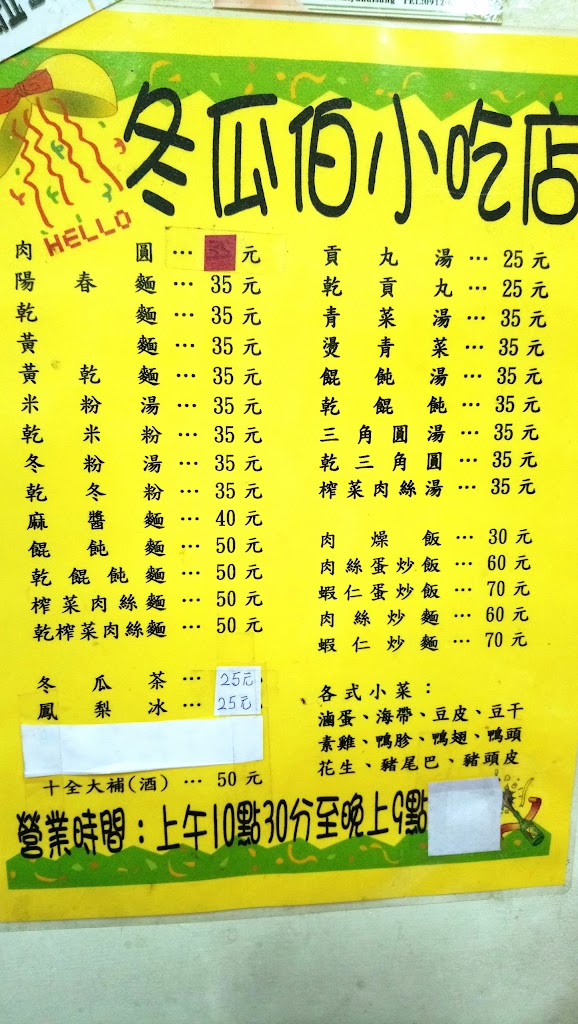 TEL:0912
冬瓜伯小吃店
HELLO
肉圓…元
陽春麵…35元
乾麵…35元
黃麵…35元
黃乾麵…35元
米粉湯…35元
乾米粉…35元
冬粉湯…35元
乾冬粉…35元
麻醬麵…40元
餛飩麵…50元
乾餛飩麵…50元
榨菜肉絲麵…50元
乾榨菜肉絲麵…50元
冬瓜茶…25元
鳳梨冰…25元
十全大補(酒)…50元
貢丸湯…25元
乾貢丸…25元
青菜湯…35元
燙青菜…35元
餛飩湯…35元
乾餛飩…35元
三角圓湯…35元
乾三角圓…35元
榨菜肉絲湯…35元
肉燥飯…30元
肉絲蛋炒飯…60元
蝦仁蛋炒飯…70元
肉絲炒麵…60元
蝦仁炒麵…70元
各式小菜：
滷蛋、海帶、豆皮、豆干
素雞、鴨胗、鴨翅、鴨頭
花生、豬尾巴、豬頭皮
營業時間：上午10點30分至晚上9點